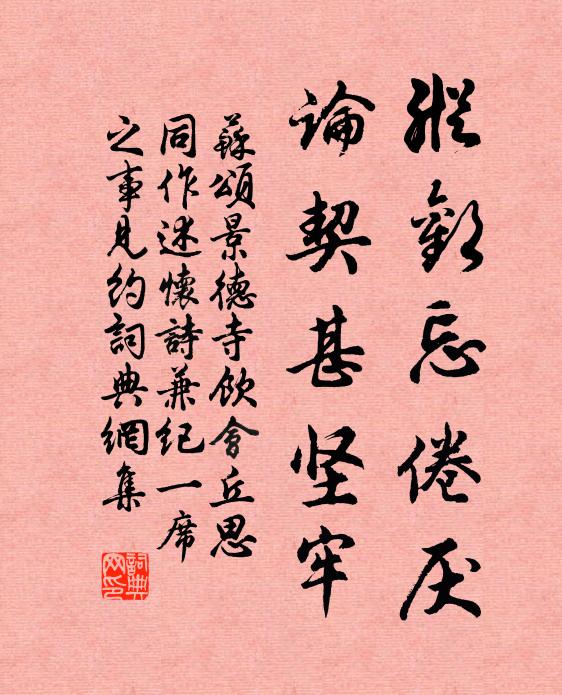 縱歡忘倦厌
論契甚坚牢
蘇頌景德寺飲會丘思
同作述懷詩兼紀一席
之事見約詞典網集
詞典网印